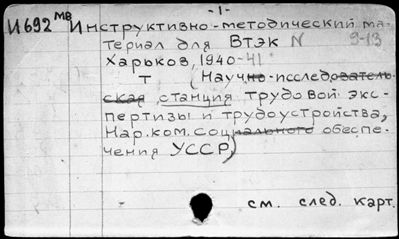 -1-
И692 МВ Инструктивно-методический ма-
териал для ВТЭК N 9-13
Харьков, 1940-41
т (Научно-исследователь-
ская станция трудовой экс-
пертизы и трудоустройства,
Нар.ком.социального обеспе-
чения УССР)
см. след. карт.